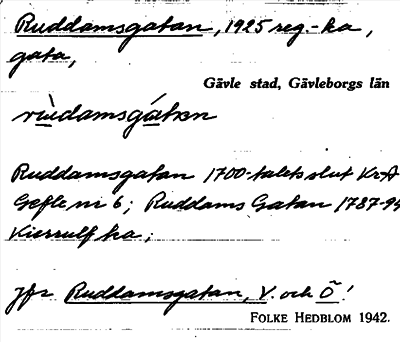 Ruddamsgatan, 1925 reg.-ka,
gata,
Gävle stad, Gävleborgs län
rùdamsgátan
Ruddamsgatan 1700-talets slut KrA
Gefle nr 6; Ruddams Gatan 1787-94
Kierrulf ka;
Jfr Ruddamsgatan, V. och Ö!
FOLKE HEDBLOM 1942.